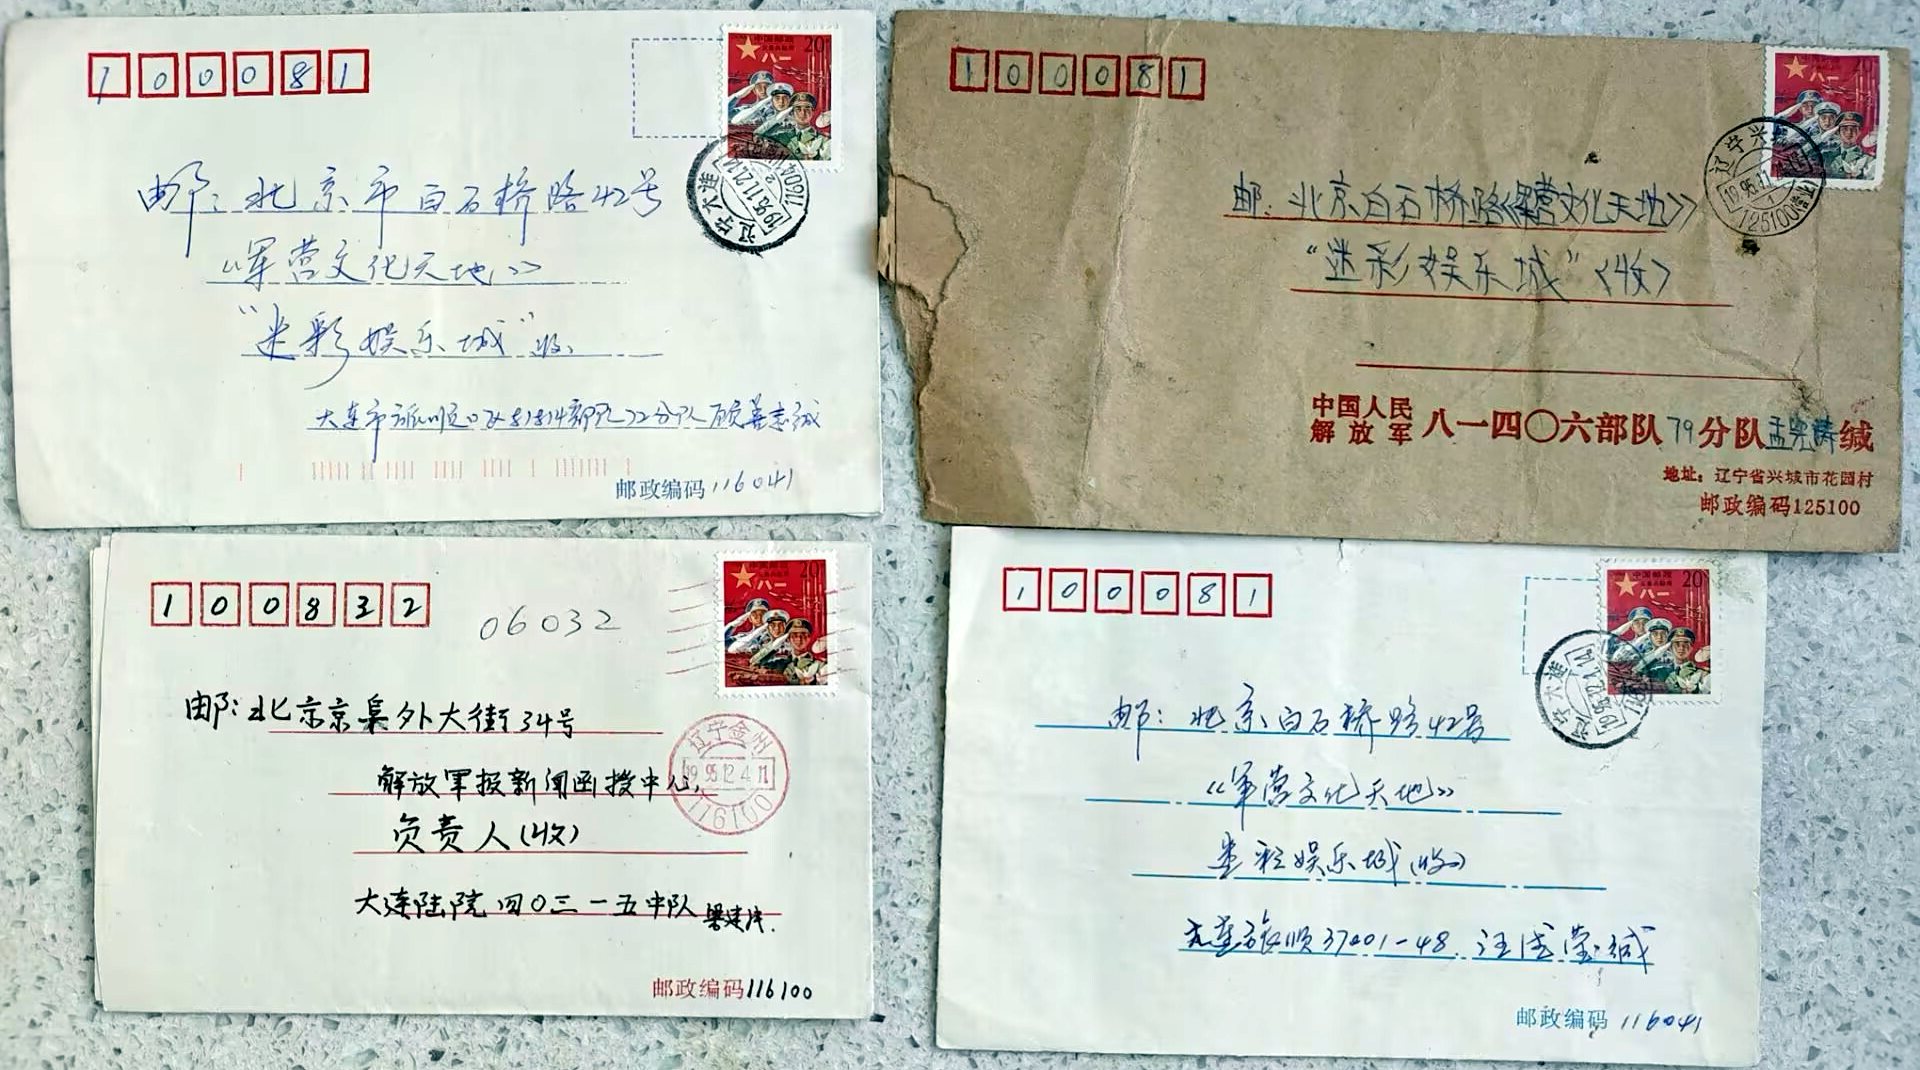 100081
中国邮政
20
八一
邮:北京市白石桥路42号
《军营文化天地》
“迷彩娱乐城”收
辽宁大连
1995.11.21.14
大连市旅顺口区81814部队72分队 顾善志缄
邮政编码116041
100081
八一
邮:北京白石桥路《军营文化天地》
“迷彩娱乐城”(收)
辽宁兴城
125100(营业)
中国人民
解放军
八一四〇六部队79分队孟宪涛缄
地址:辽宁省兴城市花园村
邮政编码125100
100832
06032
20
八一
邮:北京阜外大街34号
解放军报新闻函授中心
负责人(收)
辽宁金州
1995.12.4.11
116100
大连陆院四0三一五中队
邮政编码116100
100081
20
八一
邮:北京白石桥路42号
《军营文化天地》
迷彩娱乐城(收)
辽宁大连
1995.12.2.14
大连旅顺37001-48 汪成莹缄
邮政编码 116041